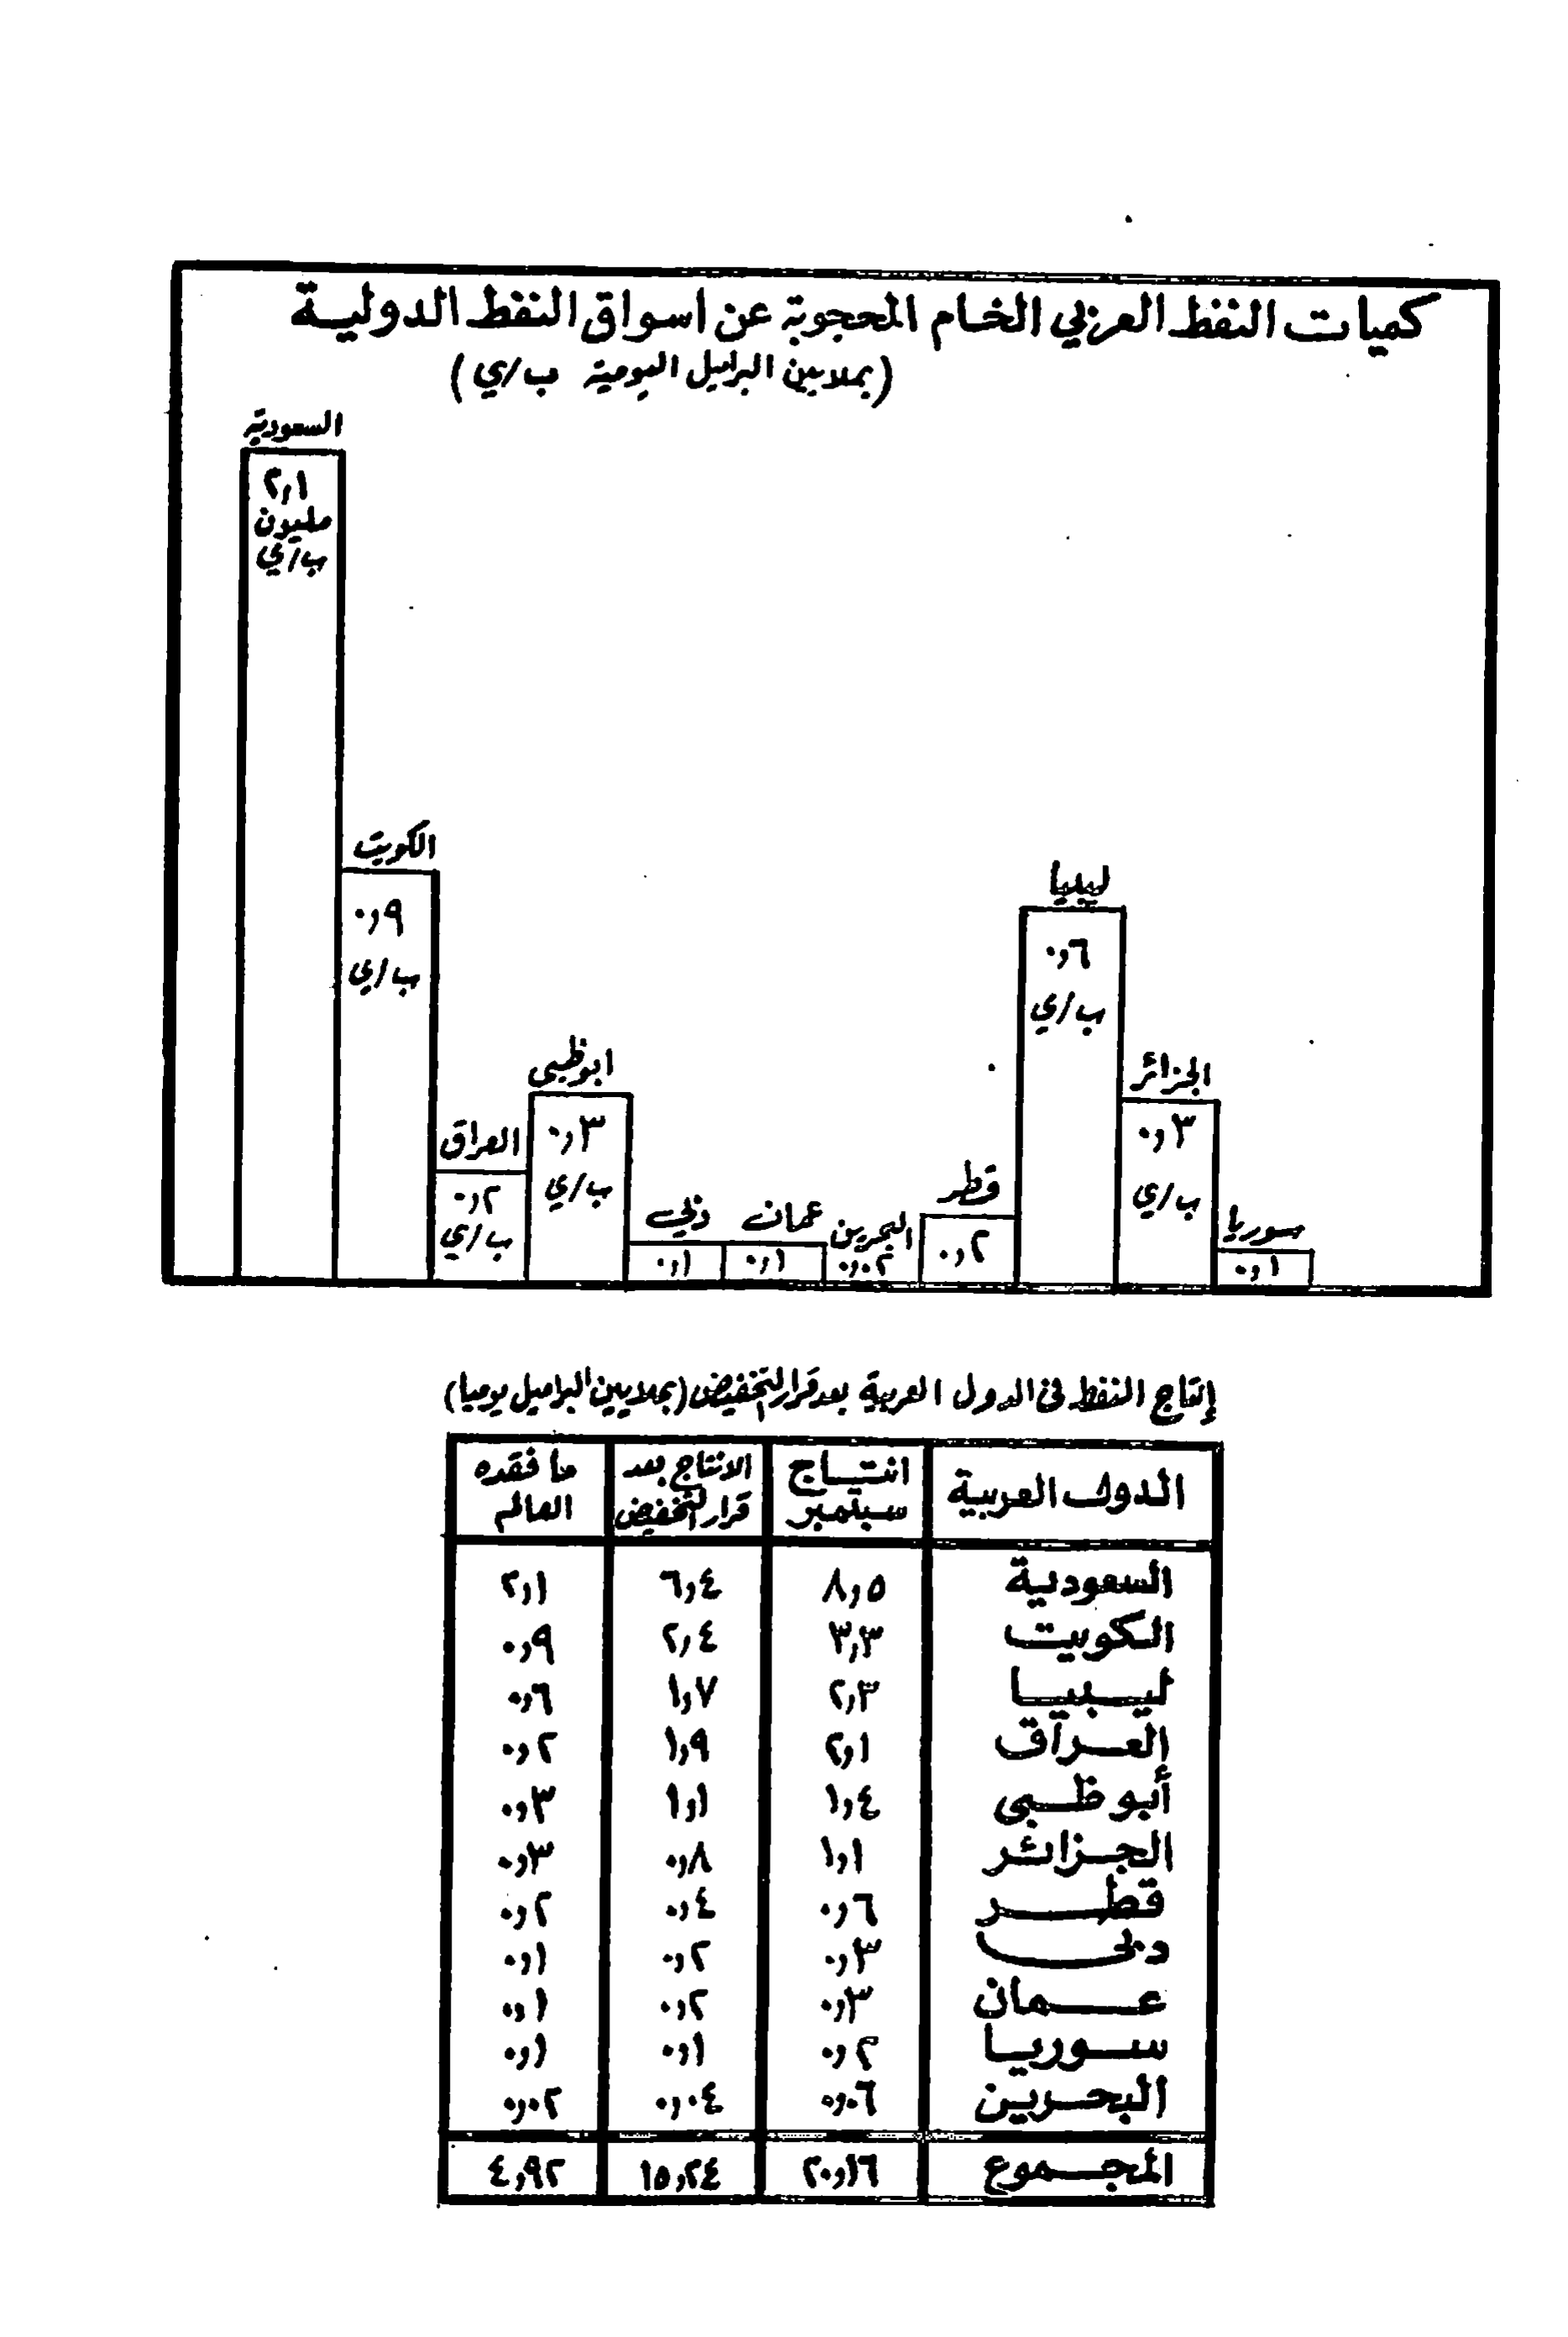 كميات النفط العربي الخام المحجوبة عن اسواق النفط الدولية
(بملايين البراميل اليومية ب/ي)
السعودية
٢,١
مليون
ب/ي
الكويت
٠,٩
ب/ي
العراق
٠,٢
ب/ي
ابوظبي
٠,٣
ب/ي
دبي
٠,١
عمان
٠,١
البحرين
٠,٠٢
قطر
٠,٢
ليبيا
٠,٦
ب/ي
الجزائر
٠,٣
ب/ي
سوريا
٠,١
إنتاج النفط في الدول العربية بعد قرار التخفيض (بملايين البراميل يوميا)
الدول العربية | انتاج سبتمبر | الانتاج بعد قرار التخفيض | ما فقده العالم
السعودية ٨,٥ ٦,٤ ٢,١
الكويت ٣,٣ ٢,٤ ٠,٩
ليبيا ٢,٣ ١,٧ ٠,٦
العراق ٢,١ ١,٩ ٠,٢
أبو ظبي ١,٤ ١,١ ٠,٣
الجزائر ١,١ ٠,٨ ٠,٣
قطر ٠,٦ ٠,٤ ٠,٢
دبي ٠,٣ ٠,٢ ٠,١
عمان ٠,٣ ٠,٢ ٠,١
سوريا ٠,٢ ٠,١ ٠,١
البحرين ٠,٠٦ ٠,٠٤ ٠,٠٢
المجموع ٢٠,١٦ ١٥,٢٤ ٤,٩٢